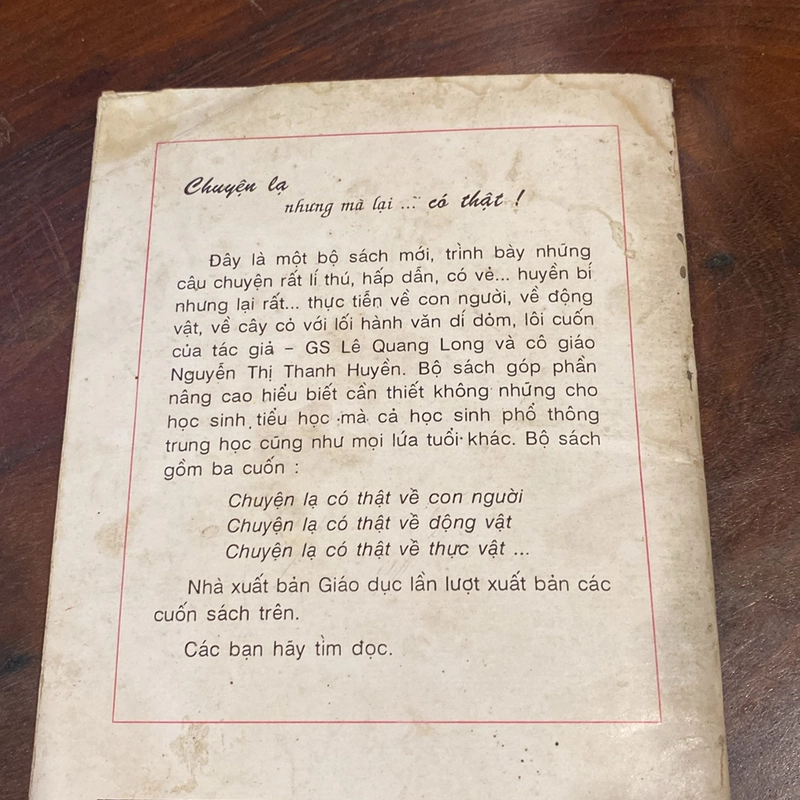 Chuyện lạ
nhưng mà lại ... có thật !
Đây là một bộ sách mới, trình bày những
câu chuyện rất lí thú, hấp dẫn, có vẻ... huyền bí
nhưng lại rất... thực tiễn về con người, về động
vật, về cây cỏ với lối hành văn dí dỏm, lôi cuốn
của tác giả – GS Lê Quang Long và cô giáo
Nguyễn Thị Thanh Huyền. Bộ sách góp phần
nâng cao hiểu biết cần thiết không những cho
học sinh tiểu học mà cả học sinh phổ thông
trung học cũng như mọi lứa tuổi khác. Bộ sách
gồm ba cuốn :
Chuyện lạ có thật về con người
Chuyện lạ có thật về động vật
Chuyện lạ có thật về thực vật ...
Nhà xuất bản Giáo dục lần lượt xuất bản các
cuốn sách trên.
Các bạn hãy tìm đọc.